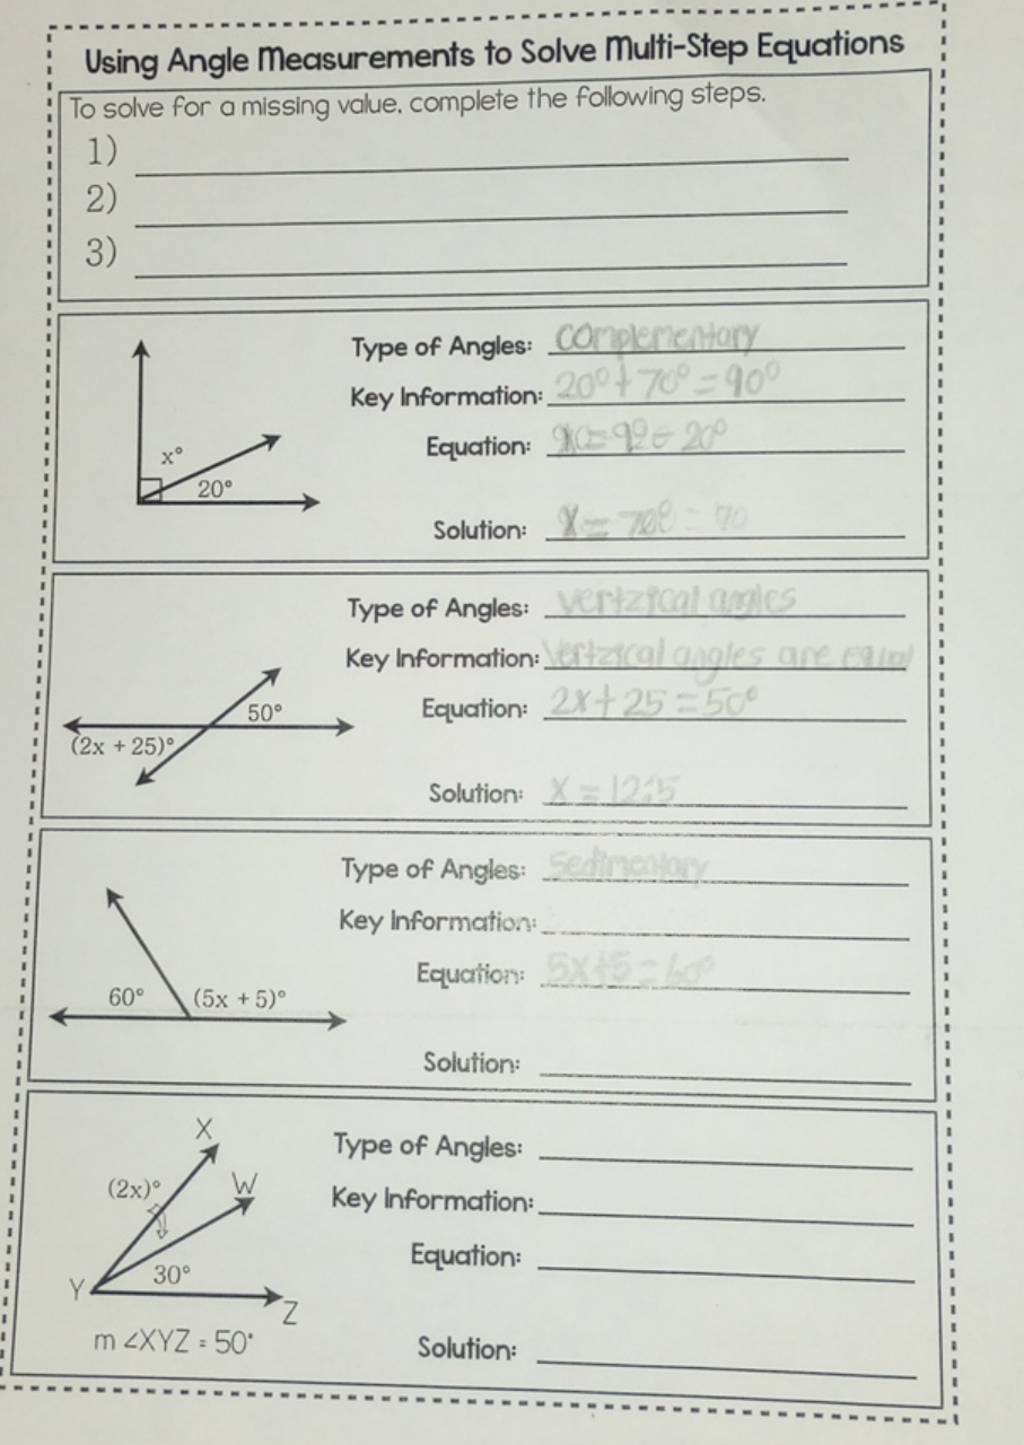 Using Angle Measurements to Solve Multi-Step Equations
To solve for a missing value, complete the following steps.
1)
2)
3)
Type of Angles: complementary
Key Information: 20° + 70° = 90°
x°
Equation: 20°
20°
Solution: X = 70
Type of Angles: vertzical angles
Key Information: Vertzical angles are equal
50°
Equation: 2x + 25 = 50°
(2x + 25)°
Solution: X = 12.5
Type of Angles: Sedimentary
Key Information:
Equation: 5x+5 = 60°
60° (5x + 5)°
Solution:
X
Type of Angles:
(2x)° W
Key Information:
Equation:
30°
Y
Z
m ∠XYZ = 50°
Solution: